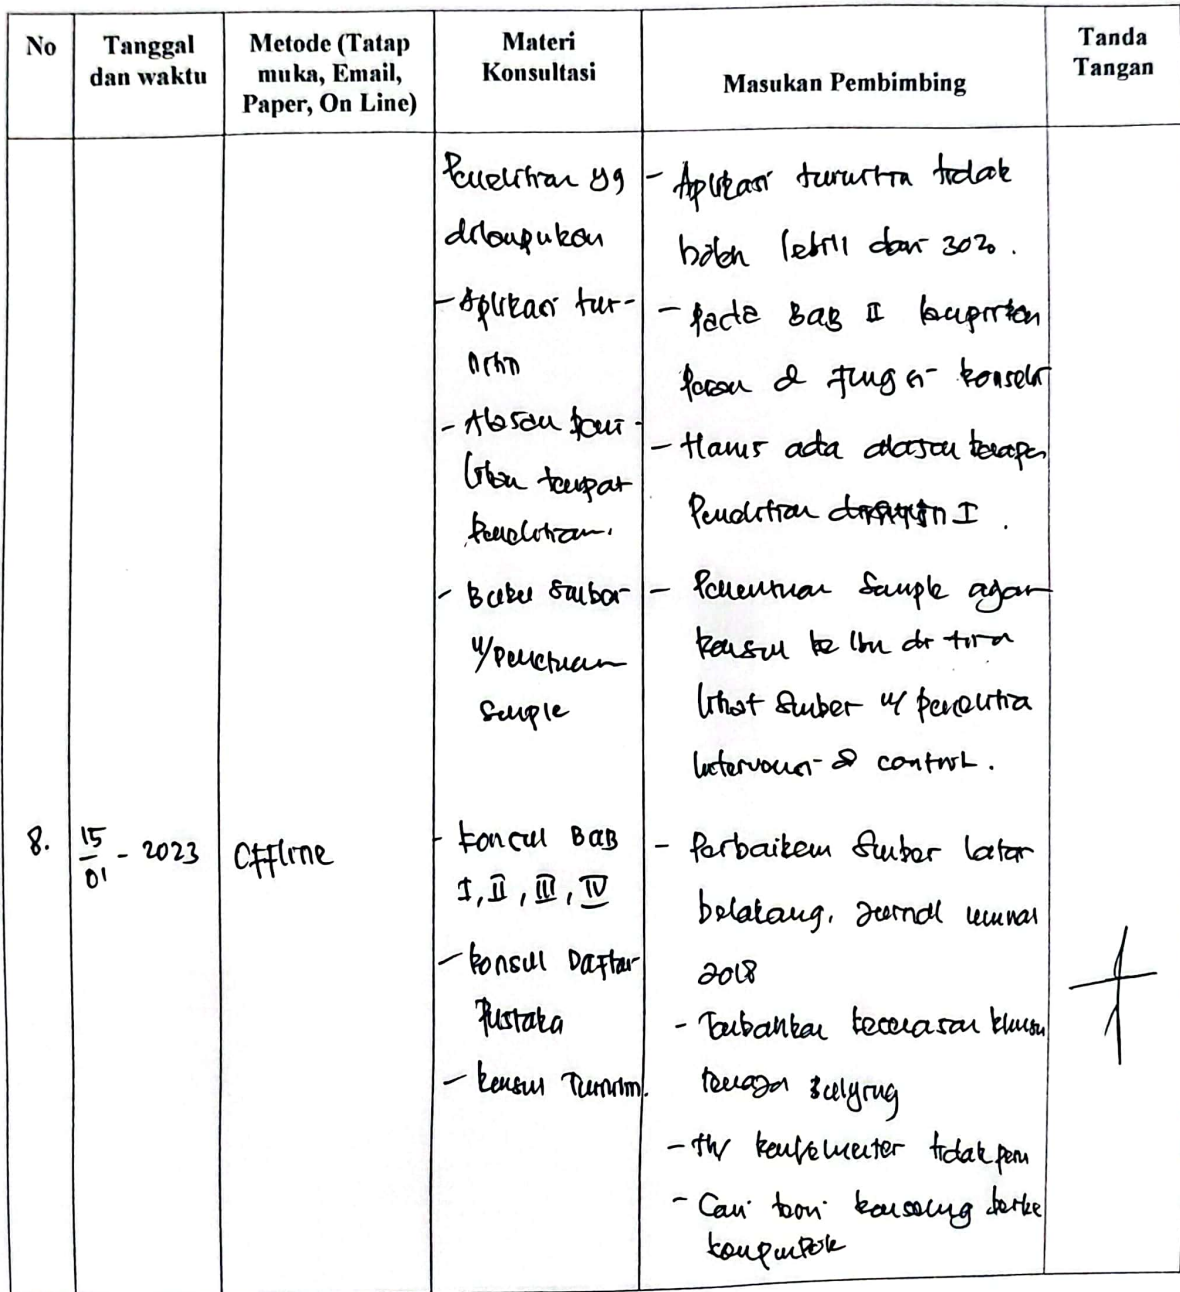 No
Tanggal
dan waktu
Metode (Tatap
muka, Email,
Paper, On Line)
Materi
Konsultasi
Masukan Pembimbing
Tanda
Tangan
Penelitian yg
dilampirkan
- Aplikasi tur-
nitin
- Alasan pemi-
lihan tempat
penelitian.
- Buku sumber
u/ penentuan
sample
- Aplikasi turnitin tidak
boleh lebih dari 30%.
- Pada BAB II lampirkan
peran & fungsi konselor
- Harus ada alasan kenapa
Penelitian
- Penentuan Sample agar
konsul ke Ibu dr tira
lihat sumber u/ penelitia
intervensi & control.
8.
15/01 - 2023
Offline
- Konsul BAB
I, II, III, IV
- Konsul Daftar
Pustaka
- Konsul Turnitin.
- Perbaikan sumber latar
belakang, jurnal minimal
2018
- Tambahkan kecemasan khusus
- tidak perlu
- Cari teori konseling